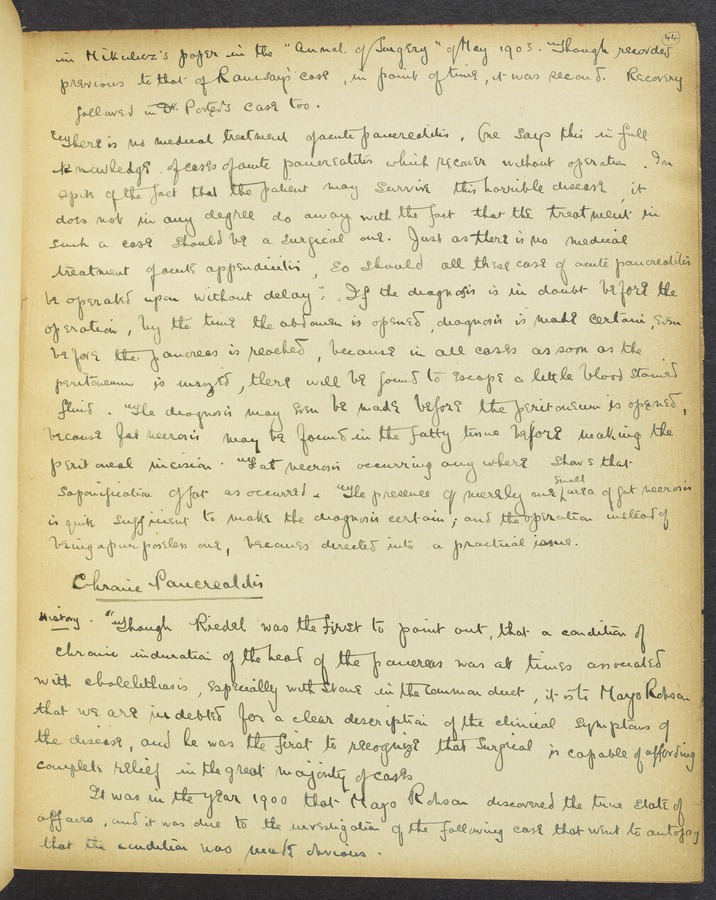 44
in Mikulicz's paper in the "Annal. of Surgery" of May 1903. Though recorded
previous to that of Ramsay's case, in point of time, it was second. Recovery
followed in Dr Porter's case too.
There is no medical treatment of acute pancreatitis, (we say this in full
knowledge of cases of acute pancreatitis which recover without operation. In
spite of the fact that the patient may survive this horrible disease, it
does not in any degree do away with the fact that the treatment in
such a case should be a surgical one. Just as there is no medical
treatment of acute appendicitis, so should all these case of acute pancreatitis
be operated upon without delay". If the diagnosis is in doubt before the
operation, by the time the abdomen is opened, diagnosis is made certain, even
before the pancreas is reached, because in all cases as soon as the
peritoneum is incised, there will be found to escape a little blood stained
fluid. "The diagnosis may even be made before the peritoneum is opened,
because fat necrosis may be found in the fatty tissue before making the
peritoneal incision. "Fat necrosis occurring any where shows that
saponification of fat as occurred. "The presence of merely one small area of fat necrosis
is quite sufficient to make the diagnosis certain; and the operation instead of
being a purposeless one, becomes directed into a practical issue.
Chronic Pancreatitis
History. "Though Riedel was the first to point out, that a condition of
chronic induration of the head of the pancreas was at times associated
with cholelithiasis, especially with stone in the common duct, it is to Mayo Robson
that we are indebted for a clear description of the clinical symptoms of
the disease, and he was the first to recognize that surgical is capable of affording
complete relief in the great majority of cases.
It was in the year 1900 that Mayo Robson discovered the true state of
affairs, and it was due to the investigation of the following case that went to autopsy
that the condition was made obvious.